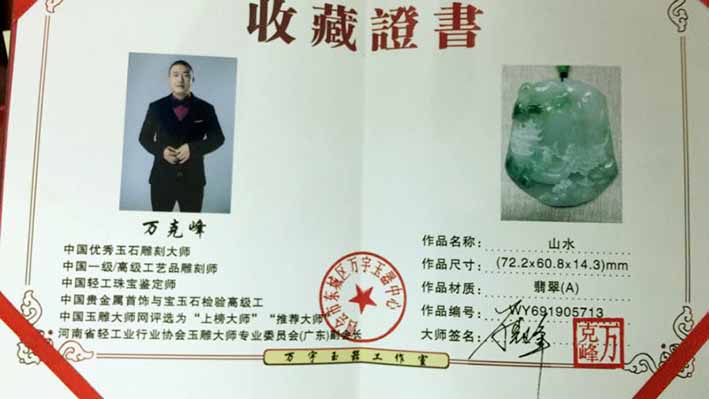 收藏證書
万克峰
中国优秀玉石雕刻大师
中国一级/高级工艺品雕刻师
中国轻工珠宝鉴定师
中国贵金属首饰与宝玉石检验高级工
中国玉雕大师网评选为“上榜大师”“推荐大师”
河南省轻工业行业协会玉雕大师专业委员会(广东)副会长
作品名称: 山水
作品尺寸: (72.2x60.8x14.3)mm
作品材质: 翡翠(A)
作品编号: WY691905713
大师签名:
万克峰
会市东城区万宇玉器中心
万宇玉器工作室